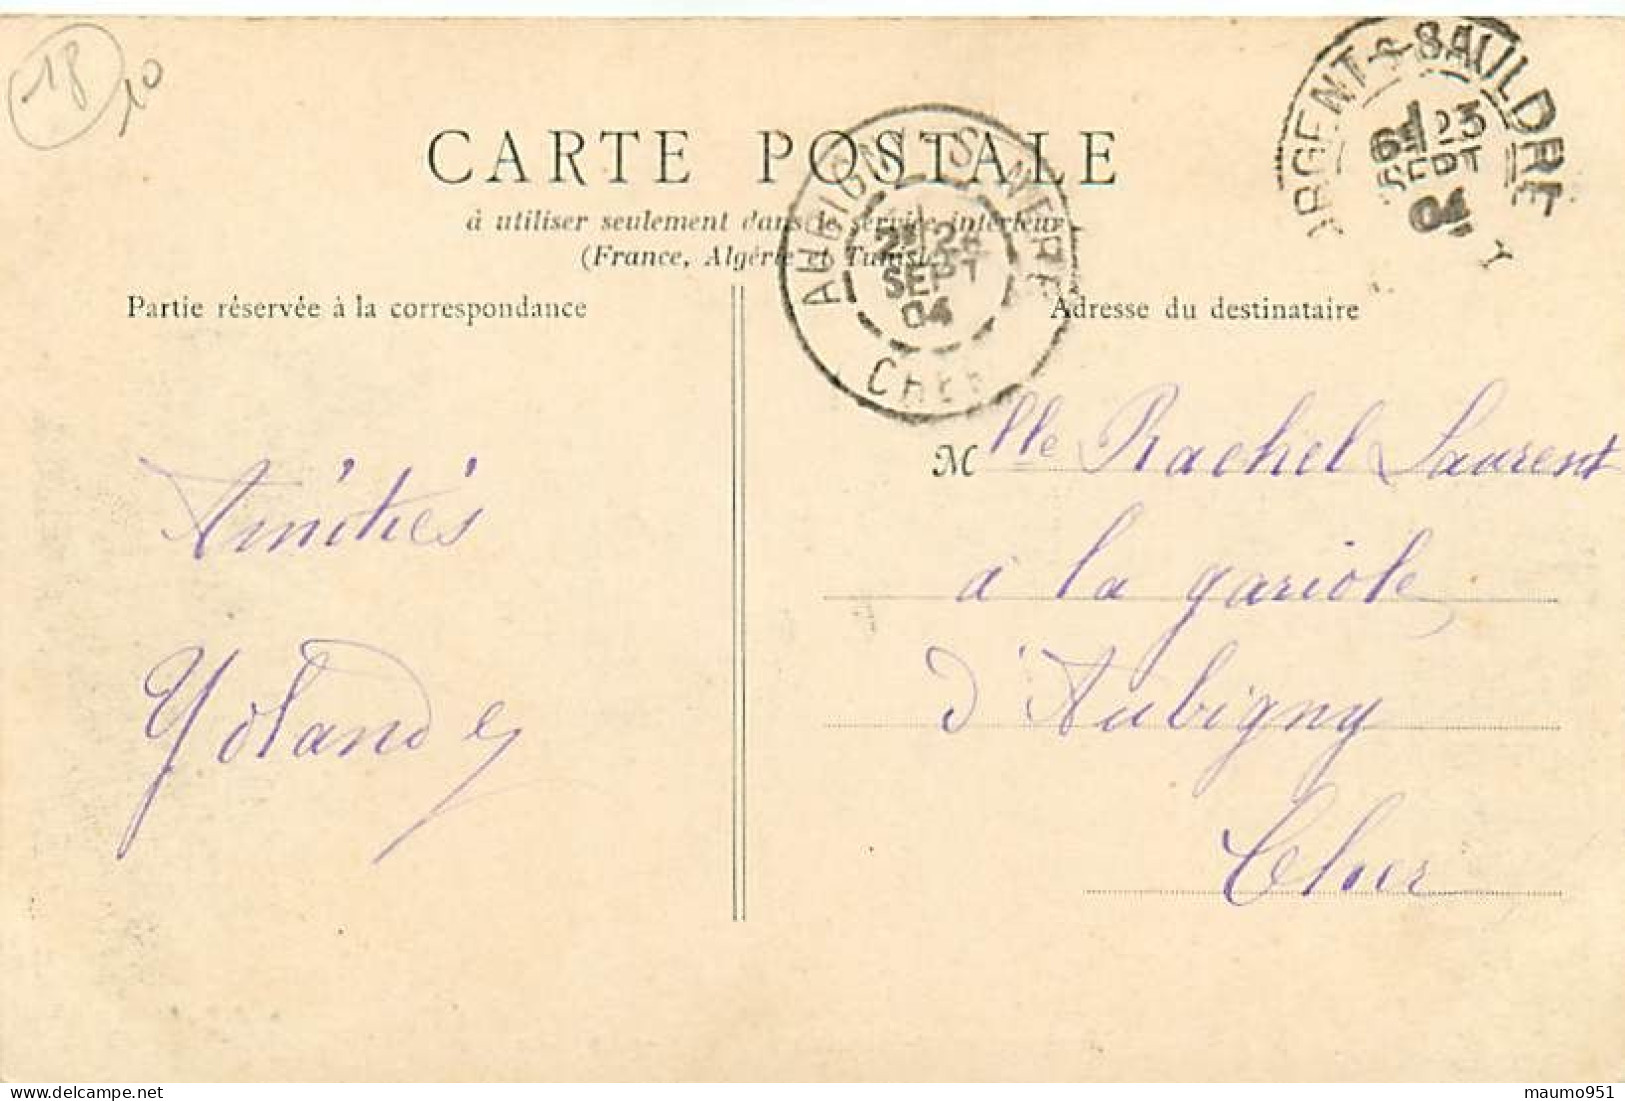 18
10
CARTE POSTALE
à utiliser seulement dans le service intérieur
(France, Algérie et Tunisie)
Partie réservée à la correspondance
Adresse du destinataire
ARGENT-S-SAULDRE
23
SEPT
04
AUBIGNY-S-NERE
24
SEPT
04
CHER
Mlle Rachel Laurent
a la gariole
d'Aubigny
Cher
Amitiés
Yolande
maumo951